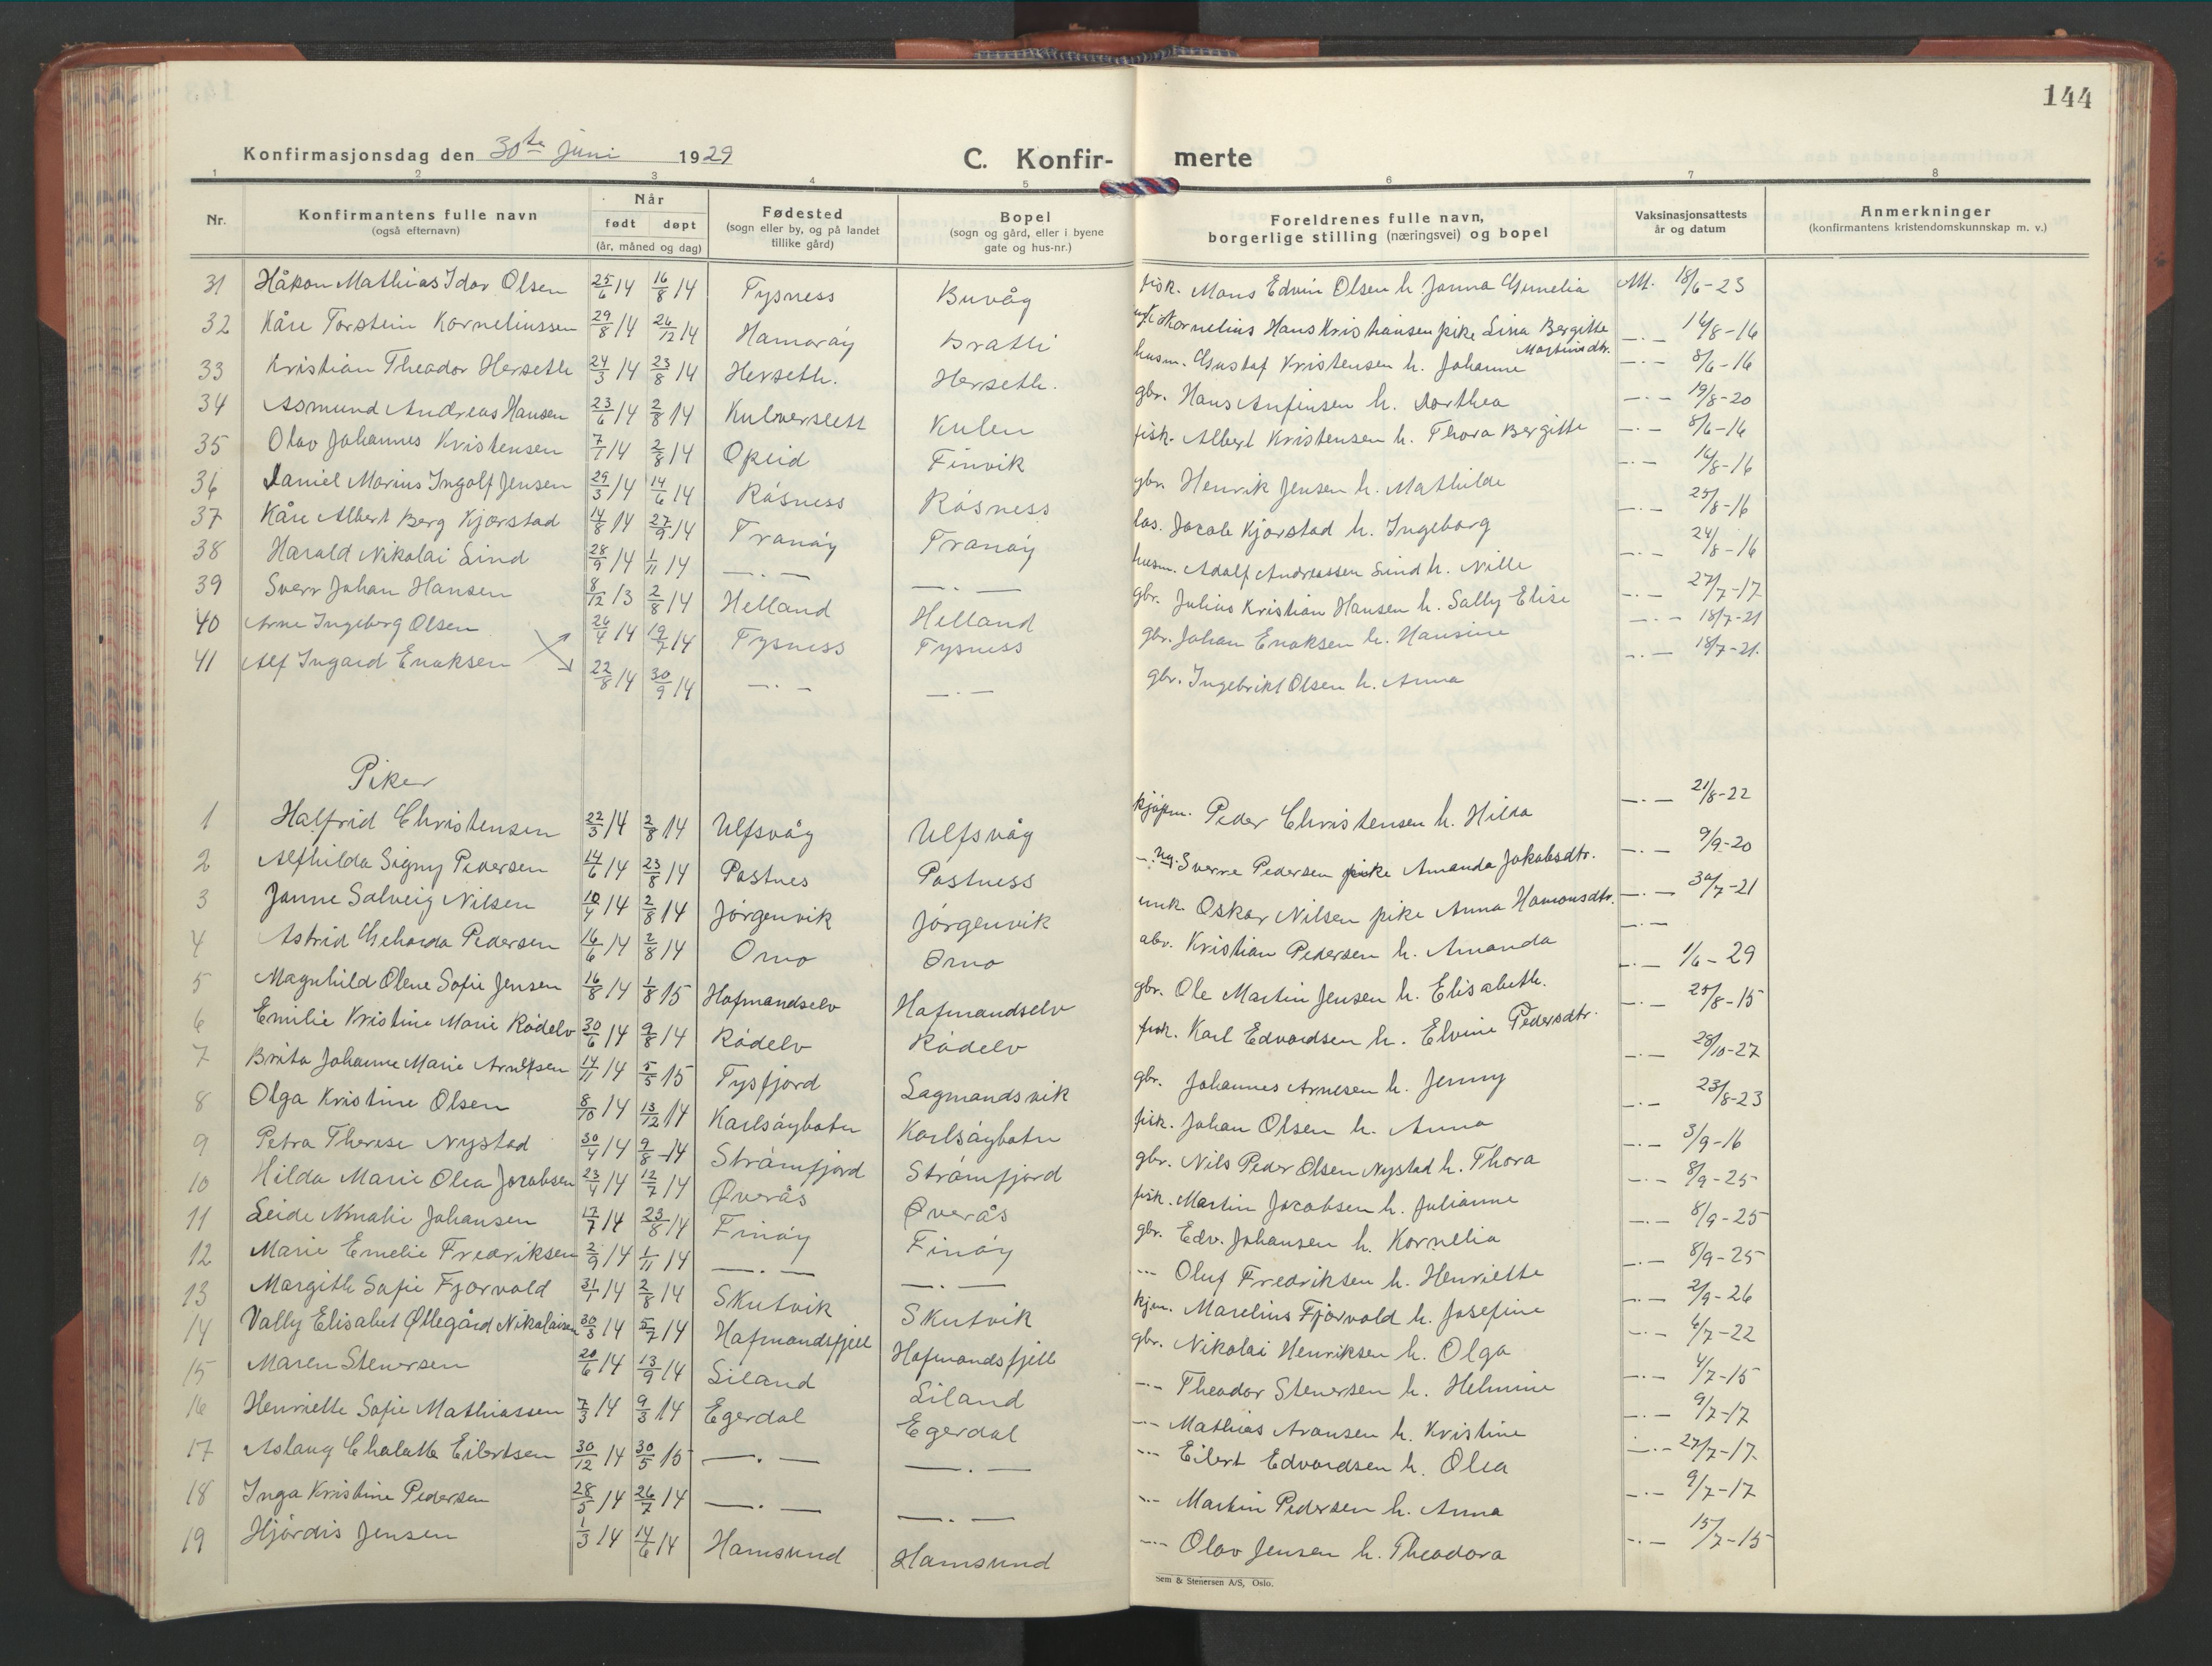 144
Konfirmasjonsdag den 30te juni 1929
C. Konfir- merte
1 2 3 4 5 6 7 8
Nr. Konfirmantens fulle navn (også efternavn) Når født døpt (år, måned og dag) Fødested (sogn eller by, og på landet tillike gård) Bopel (sogn og gård, eller i byene gate og hus-nr.) Foreldrenes fulle navn, borgerlige stilling (næringsvei) og bopel Vaksinasjonsattests år og datum Anmerkninger (konfirmantens kristendomskunnskap m. v.)
31 Håkon Mathias Idar Olsen 25/6 14 16/8 14 Tysness Buvåg fisk. Mons Edvin Olsen h. Janna Gunelia Att. 18/6-23
32 Kåre Torstein Korneliussen 29/8 14 26/12 14 Hamarøy Bratli Kornelius Hans Kristiansen pike Lina Bergitte Martinsdtr. —.— 16/8-16
33 Kristian Theador Herseth 24/3 14 23/8 14 Herseth. Herseth. husm. Gustaf Kristensen h. Johanne —.— 8/6-16
34 Asmund Andreas Hansen 23/6 14 2/8 14 Kulen gbr. Hans Anfinsen h. Dorthea —.— 19/8-20
35 Olav Johannes Kristensen 7/7 14 2/8 14 Opeid Finvik fisk. Albert Kristensen h. Thora Bergitte —.— 8/6-16
36 Daniel Marius Ingolf Jensen 29/3 14 14/6 14 Råsness Råsness gbr. Henrik Jensen h. Mathilde —.— 16/8-16
37 Kåre Albert Berg Kjørstad 14/8 14 27/9 14 Tranøy Tranøy los. Jacob Kjørstad h. Ingeborg —.— 25/8-16
38 Harald Nikolai Lind 28/9 14 1/11 14 —.— —.— husm. Adolf Andreassen Lind h. Nille —.— 24/8-16
39 Sverr Johan Hansen 8/12 13 2/8 14 Helland Helland gbr. Julius Kristian Hansen h. Sally Elise —.— 27/7-17
40 Arne Ingeberg Olsen 26/4 14 19/7 14 Tysness Tysness gbr. Johan Enoksen h. Hansine —.— 18/7-21
41 Alf Ingard Enoksen 22/8 14 30/9 14 —.— —.— gbr. Ingebrikt Olsen h. Anna —.— 18/7-21.
Piker
1 Halfrid Christensen 22/3 14 2/8 14 Ulfsvåg Ulfsvåg kjøpm. Peder Christensen h. Hilda —.— 21/8-22
2 Alfhilda Signy Pedersen 14/6 14 23/8 14 Postnes Postness Sverre Pedersen pike Amanda Jakobsdtr. —.— 9/9-20
3 Janne Solveig Nilsen 10/4 14 2/8 14 Jørgenvik Jørgenvik unk. Oskar Nilsen pike Anna Hamonsdtr. —.— 30/7-21
4 Astrid Geharda Pedersen 16/6 14 2/8 14 Ørno Ørno Kristian Pedersen h. Amanda —.—
5 Magnhild Olene Sofie Jensen 16/8 14 1/8 15 Hofmandselv Hofmandselv gbr. Ole Martin Jensen h. Elisabeth. —.— 1/6-29
6 Emilie Kristine Marie Rødelv 30/6 14 9/8 14 Rødelv Rødelv fisk. Karl Edvardsen h. Elvine Pedersdtr. —.— 25/8-15
7 Brita Johanne Marie Arntsen 14/11 14 5/5 15 Tysfjord Lagmandsvik gbr. Johannes Arnesen h. Jenny —.— 28/10-27
8 Olga Kristine Olsen 8/10 14 13/12 14 Karlsøybotn Karlsøybotn fisk. Johan Olsen h. Anna —.— 23/8-23
9 Petra Therese Nystad 30/4 14 9/8-14 Strømfjord Strømfjord gbr. Nils Peder Olsen Nystad h. Thora —.— 3/9-16
10 Hilda Marie Olea Jacobsen 23/4 14 12/7 14 Øverås Øverås fisk. Martin Jacobsen h. Julianne —.— 8/9-25
11 Leide Amalie Johansen 17/7 14 23/8 14 Finøy Finøy gbr. Edv. Johansen h. Kornelia —.— 8/9-25
12 Marie Emelie Fredriksen 2/9 14 1/11 14 —.— —.— -.- Oluf Fredriksen h. Henriette —.— 8/9-25
13 Margith Sofie Fjørvold 31/1 14 2/8 14 Skutvik Skutvik kjm. Marelius Fjørvold h. Josefine —.— 2/9-26
14 Vally Elisabet Øllegård Nikolaisen 30/3 14 5/7 14 Hofmandsfjell Hofmandsfjell gbr. Nikolai Henriksen h. Olga —.— 6/7-22
15 Maren Stenersen 20/6 14 13/9 14 Liland Liland -.- Theodor Stenersen h. Helmine —.— 4/7-15
16 Henriette Sofie Mathiassen 7/3 14 9/3 14 Egerdal Egerdal -.- Mathias Aronsen h. Kristine —.— 9/7-17
17 Aslaug Chalatte Eilertsen 30/12 14 30/5 15 —.— —.— -.- Eilert Edvardsen h. Olea —.— 27/7-17.
18 Inga Kristine Pedersen 28/5 14 26/7 14 —.— —.— -.- Martin Pedersen h. Anna —.— 9/7-17
19 Hjørdis Jensen 1/3 14 14/6 14 Hamsund Hamsund -.- Olav Jensen h. Theodora —.— 15/7-15
Sem & Stenersen A/S, Oslo.